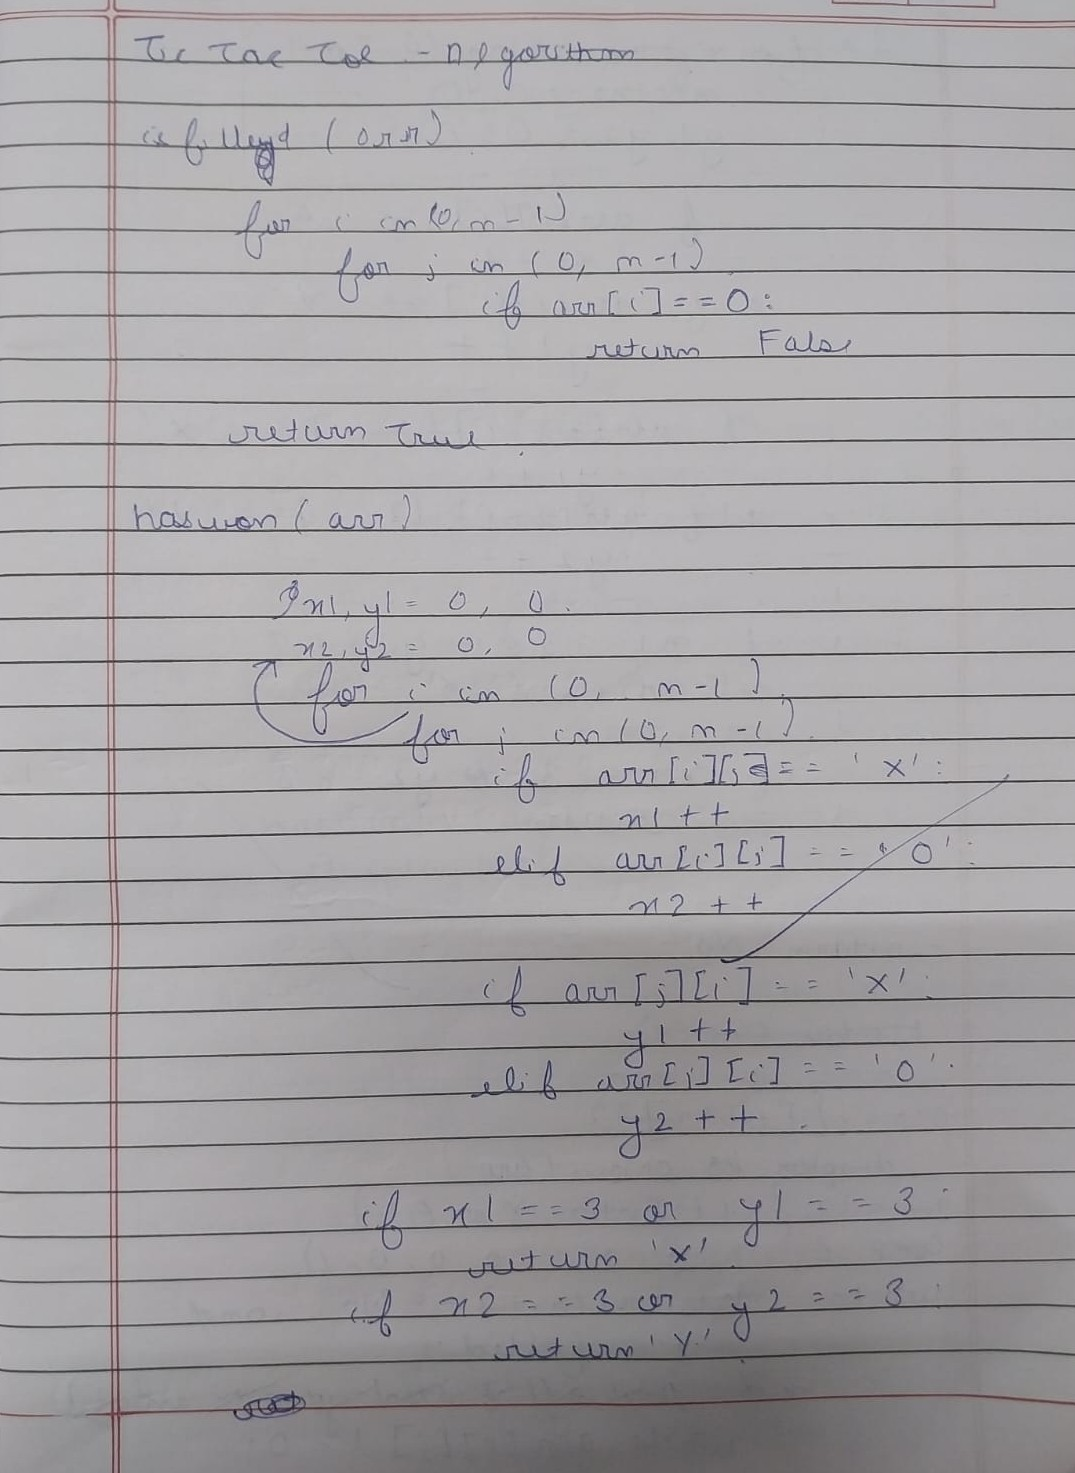 Tic Tac Toe - Algorithm
isfilled (arr)
for i in (0, n-1)
for j in (0, n-1)
if arr[i]==0:
return False
return True.
haswon (arr)
x1, y1 = 0, 0.
x2, y2 = 0, 0
for i in (0, n-1)
for j in (0, n-1)
if arr[i][j]== 'X':
x1++
elif arr[i][j] == '0':
x2++
if arr[j][i] == 'X':
y1++
elif arr[j][i] == '0':
y2++.
if x1==3 or y1==3:
return 'X'
if x2==3 or y2==3:
return 'Y'.